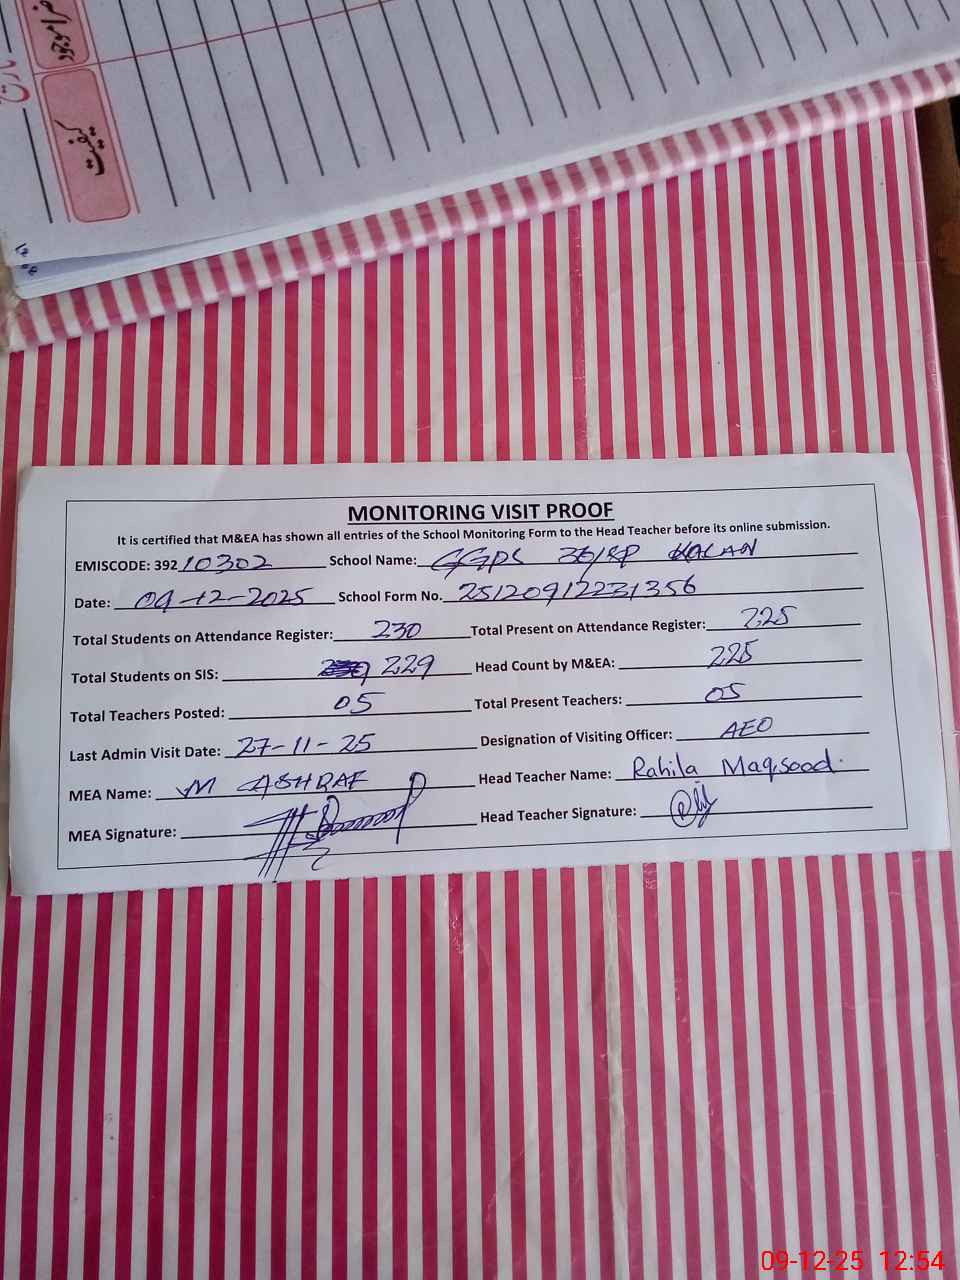 موجود
کیفیت
MONITORING VISIT PROOF
It is certified that M&EA has shown all entries of the School Monitoring Form to the Head Teacher before its online submission.
EMISCODE: 392 10302 School Name: GGPS 36/SP KALAN
Date: 09-12-2025 School Form No. 25120912231356
Total Students on Attendance Register: 230 Total Present on Attendance Register: 225
Total Students on SIS: 229 Head Count by M&EA: 225
Total Teachers Posted: 05 Total Present Teachers: 05
Last Admin Visit Date: 27-11-25 Designation of Visiting Officer: AEO
MEA Name: M ASHRAF Head Teacher Name: Rahila Maqsood.
MEA Signature: Head Teacher Signature:
09-12-25 12:54